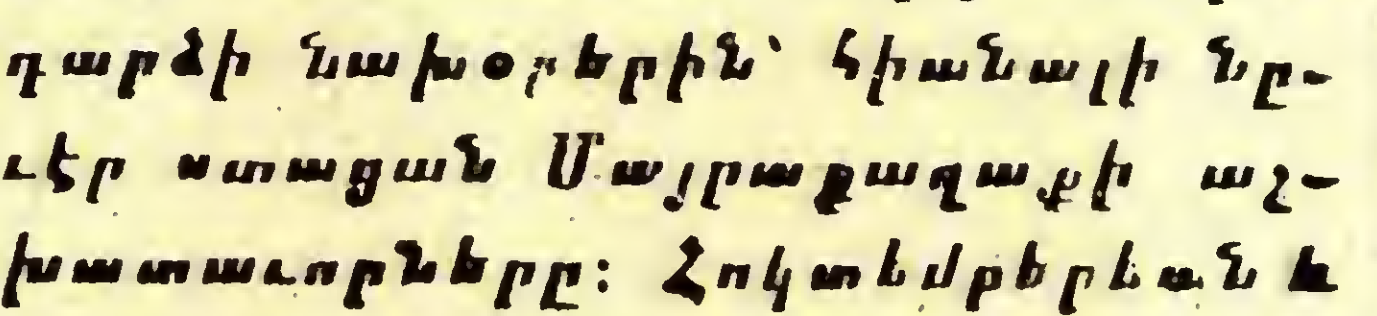 դարձի նախօրերին՝ հիանալի նը-
ւէր ստացան Մայրաքաղաքի աշ-
խատաւորները։ Հոկտեմբերեան և